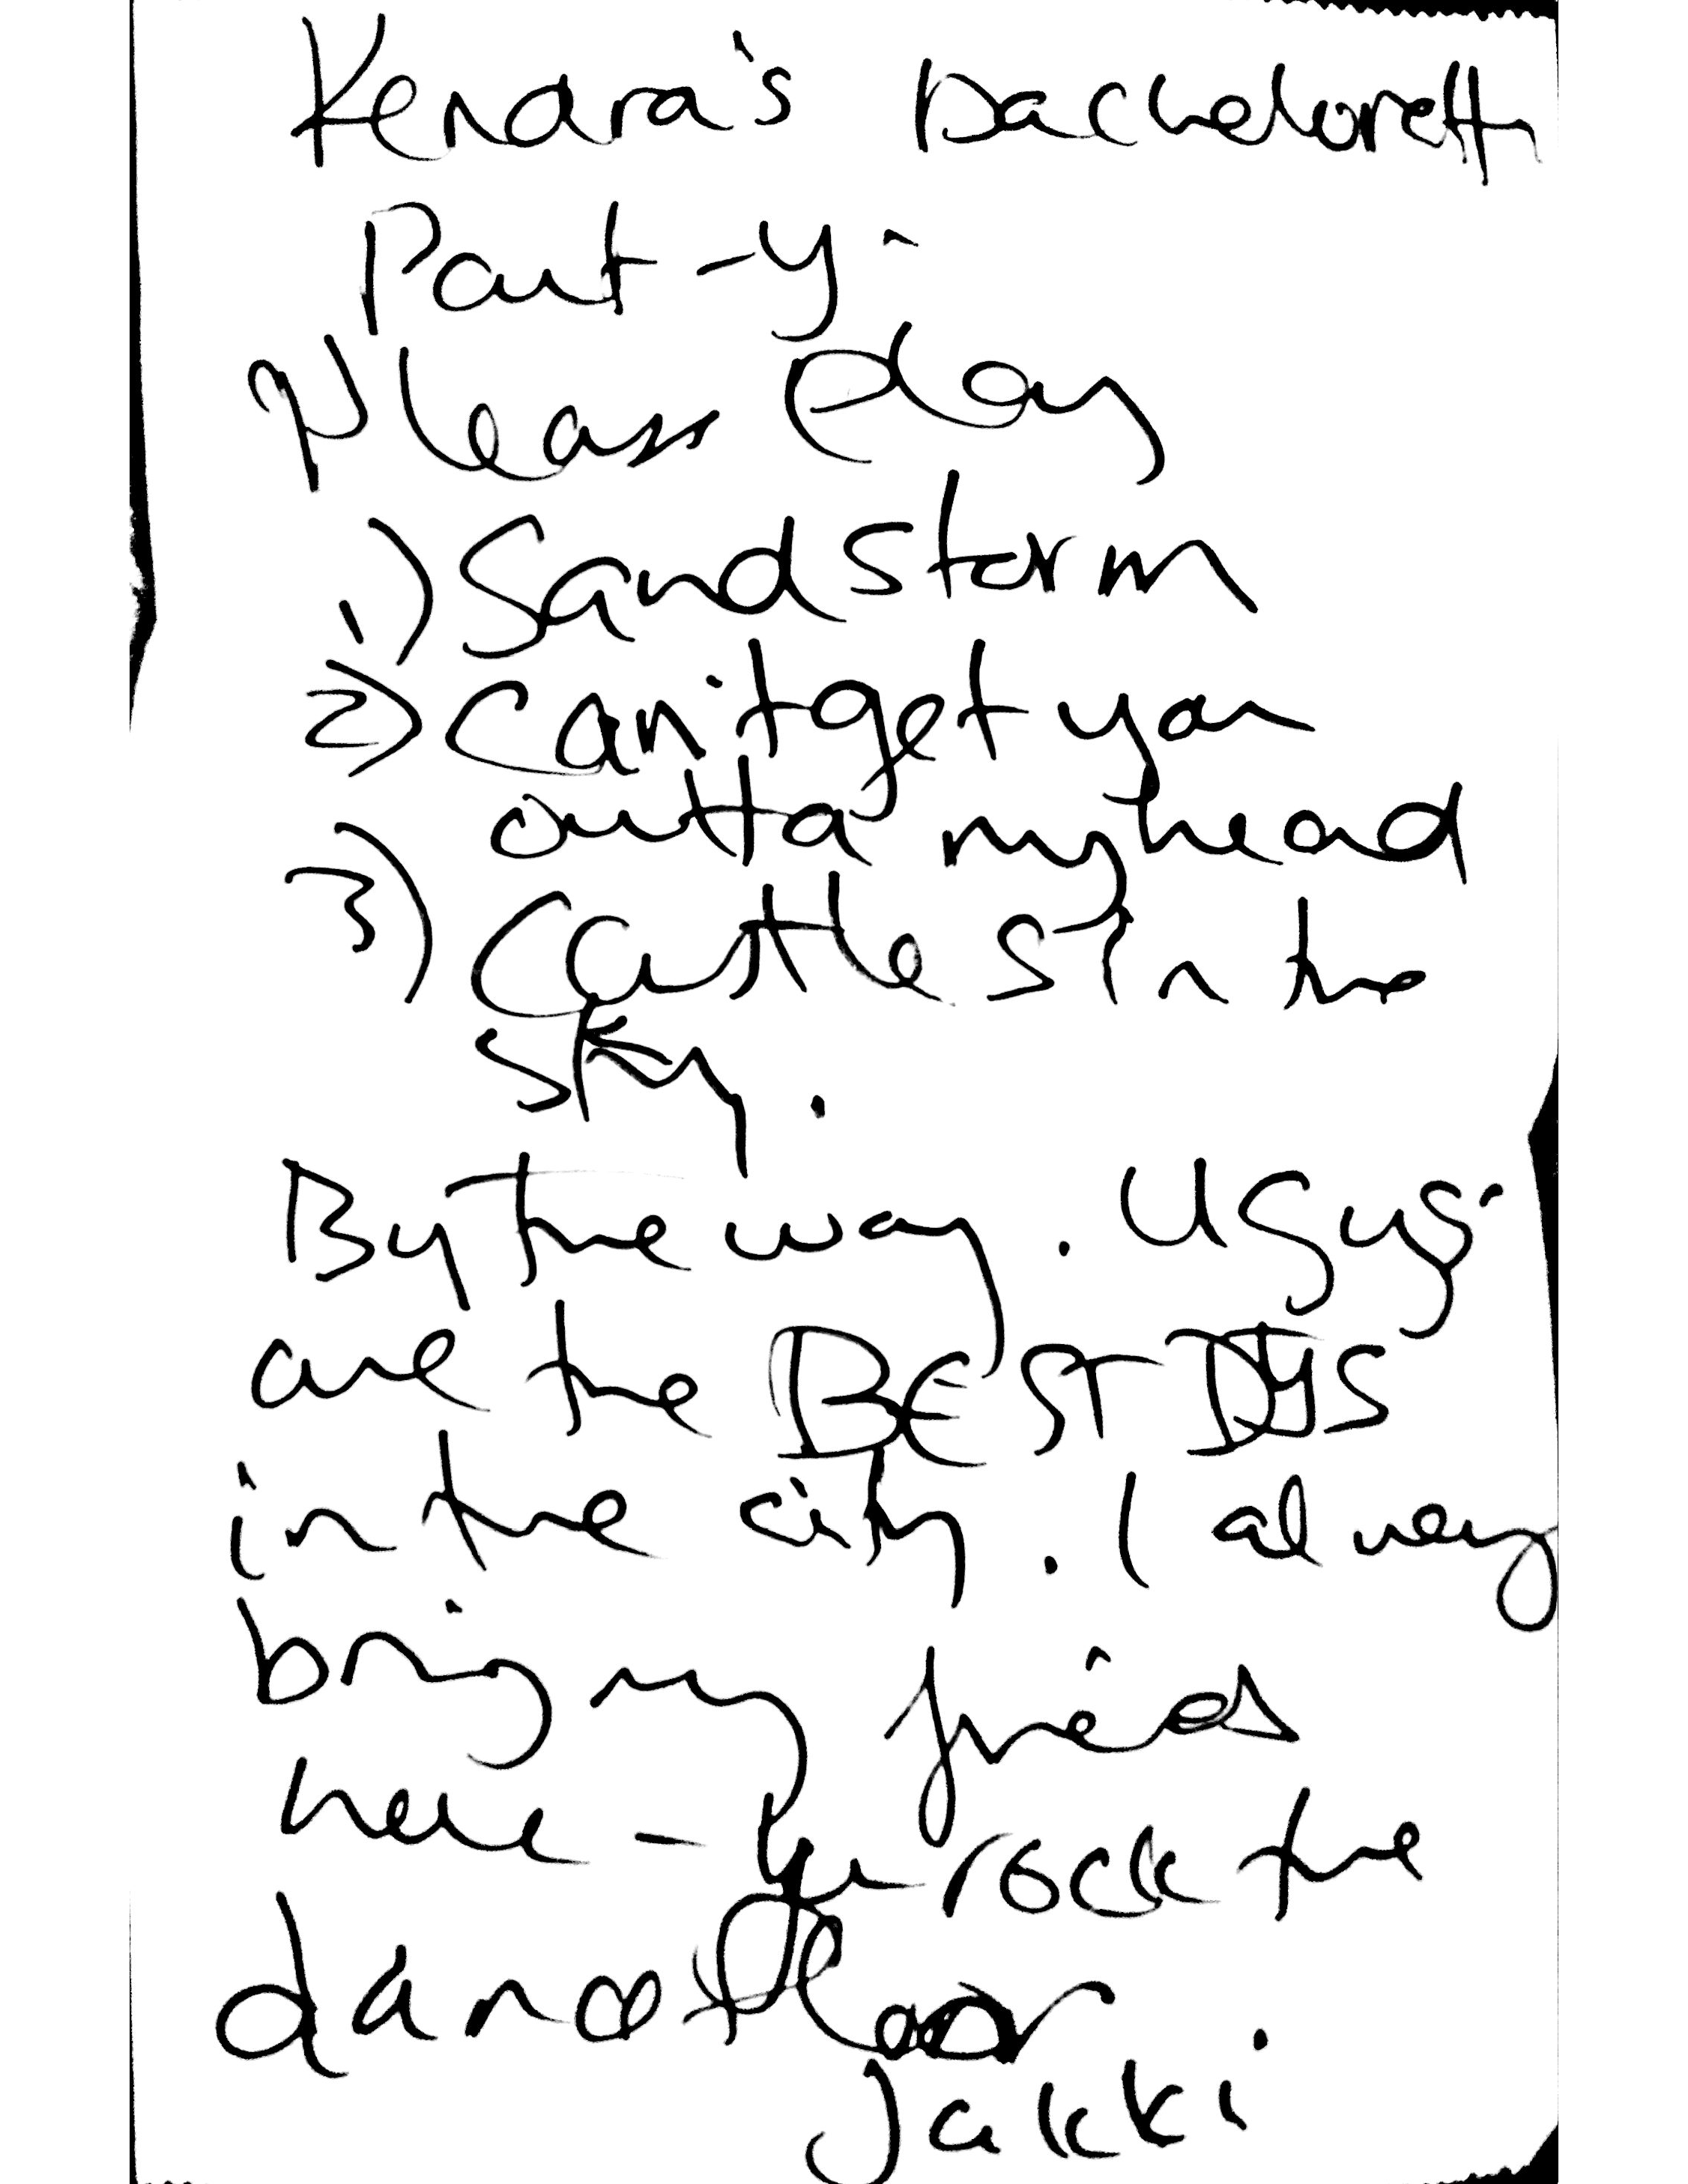 Kendra's bachelorett
Part-y-
Please play
1) Sandstorm
2) Can't get you
outta my head
3) Castles in the
sky.
By the way. U guys
are the BEST DJS
in the city. I always
bring my friends
here - You rock the
dancefloor
Jakki